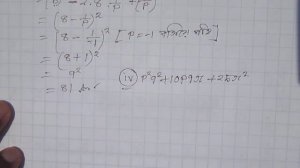 = (8 - 1/p)²
= (8 - 1/-1)² [P = -1 বসিয়ে পাই]
= (8 + 1)²
= 9²
= 81 Ans
(iv) P²q² + 10pqr + 25r²